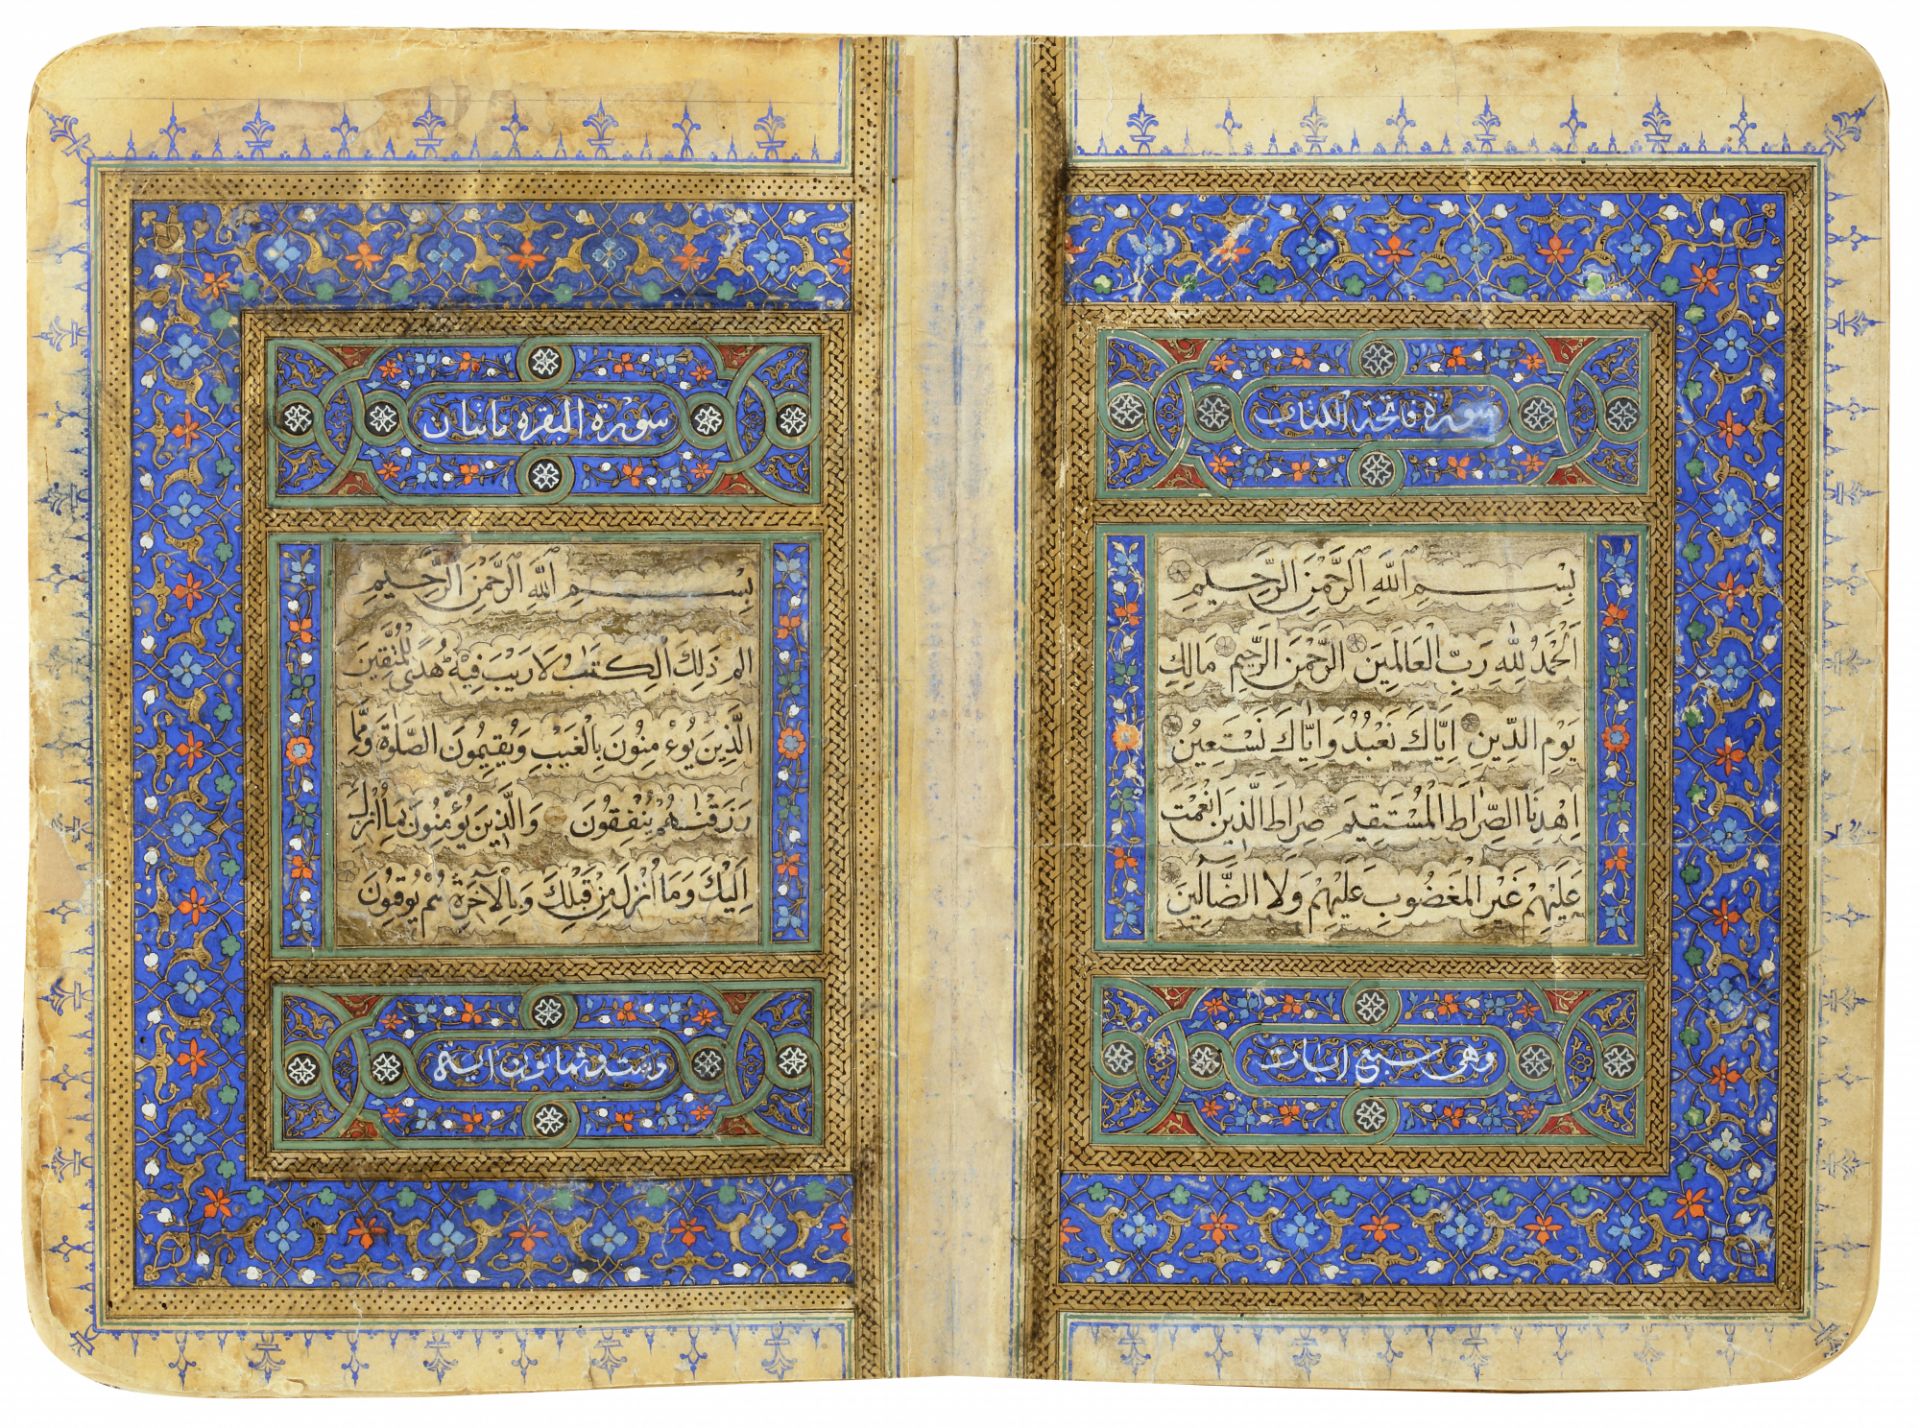 سورة فاتحة الكتاب
بِسْمِ اللهِ الرَّحْمٰنِ الرَّحِيمِ
اَلْحَمْدُ لِلّٰهِ رَبِّ الْعَالَمِينَ الرَّحْمٰنِ الرَّحِيمِ مَالِكِ
يَوْمِ الدِّينِ اِيَّاكَ نَعْبُدُ وَاِيَّاكَ نَسْتَعِينُ
اِهْدِنَا الصِّرَاطَ الْمُسْتَقِيمَ صِرَاطَ الَّذِينَ اَنْعَمْتَ
عَلَيْهِمْ غَيْرِ الْمَغْضُوبِ عَلَيْهِمْ وَلَا الضَّالِّينَ
وهي سبع ايات
سورة البقره ماتان
بِسْمِ اللهِ الرَّحْمٰنِ الرَّحِيمِ
الم ذَلِكَ الْكِتَابُ لَا رَيْبَ فِيهِ هُدًى لِلْمُتَّقِينَ
الَّذِينَ يُوءْمِنُونَ بِالْغَيْبِ وَيُقِيمُونَ الصَّلٰوةَ وَمِمَّا
رَزَقْنَاهُمْ يُنْفِقُونَ وَالَّذِينَ يُؤْمِنُونَ بِمَا اُنْزِلَ
اِلَيْكَ وَمَا اُنْزِلَ مِنْ قَبْلِكَ وَبِالْآخِرَةِ هُمْ يُوقِنُونَ
وست وثمانون اية